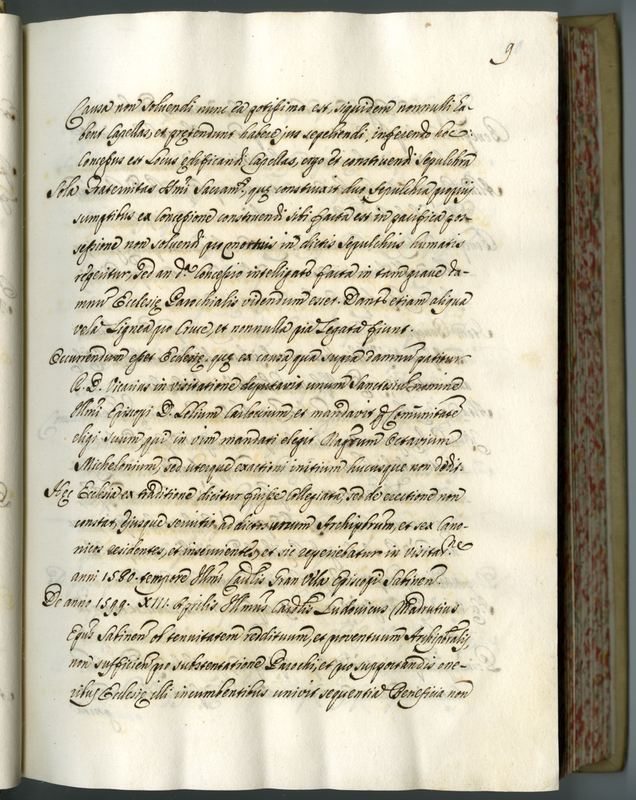 9
Causa non soluendi nunc ea potissima est, siquidem nonnulli ha-
bent Capellas, et pretendunt habere jus sepeliendi, inferendo hoc:
Concessus est Locus edificandi Capellas, ergo et construendi Sepulchra
Sola Fraternitas SSmi Sacramti, que construxit duo Sepulchra proprijs
sumptibus ex Concessione construendi sibi facta est in pacifica pos-
sessione non solvendi pro mortuis in dictis Sepulchris humatis
reperitur, sed an da Concessio intelligatr facta in tam grave da-
mnum Ecclesie Parochialis videndum esset. Dantr etiam aliqua
vela Lignea pro Cruce, et nonnulla pia Legata fiunt.
Occurrendum esset Ecclesie, que ex causa qua supra damnum patitur
R. D. Vicarius in visitatione deputavit unum nomine
Illmi Episcopi D. Lelium, et mandavit Comunitate
eligi suum, qui in vim mandati elegit Magrum Octavium
Michelonium, sed uterque exactioni initium hucusque non dedit.
Hec Ecclesia ex traditione dicitur fuisse Collegiata, sed de erectione non
constat, ejusque servitio addictos unum Archiprbrum, et sex Cano-
nicos residentes, et inservientes, et sic reperiebatur in visitatne
anni 1580. tempore Illmi Cardlis Gran Vela Episcopi Sabinen.
De anno 1599. XIII. Aprilis Illmus Cardlis Ludovicus Madrutius
Epus Sabinen ob tenuitatem reddituum, et proventuum Archiprblis,
non sufficien pro substentatione Parochi, et pro supportandis one-
ribus Ecclesie illi incumbentibus univit sequentia Beneficia non